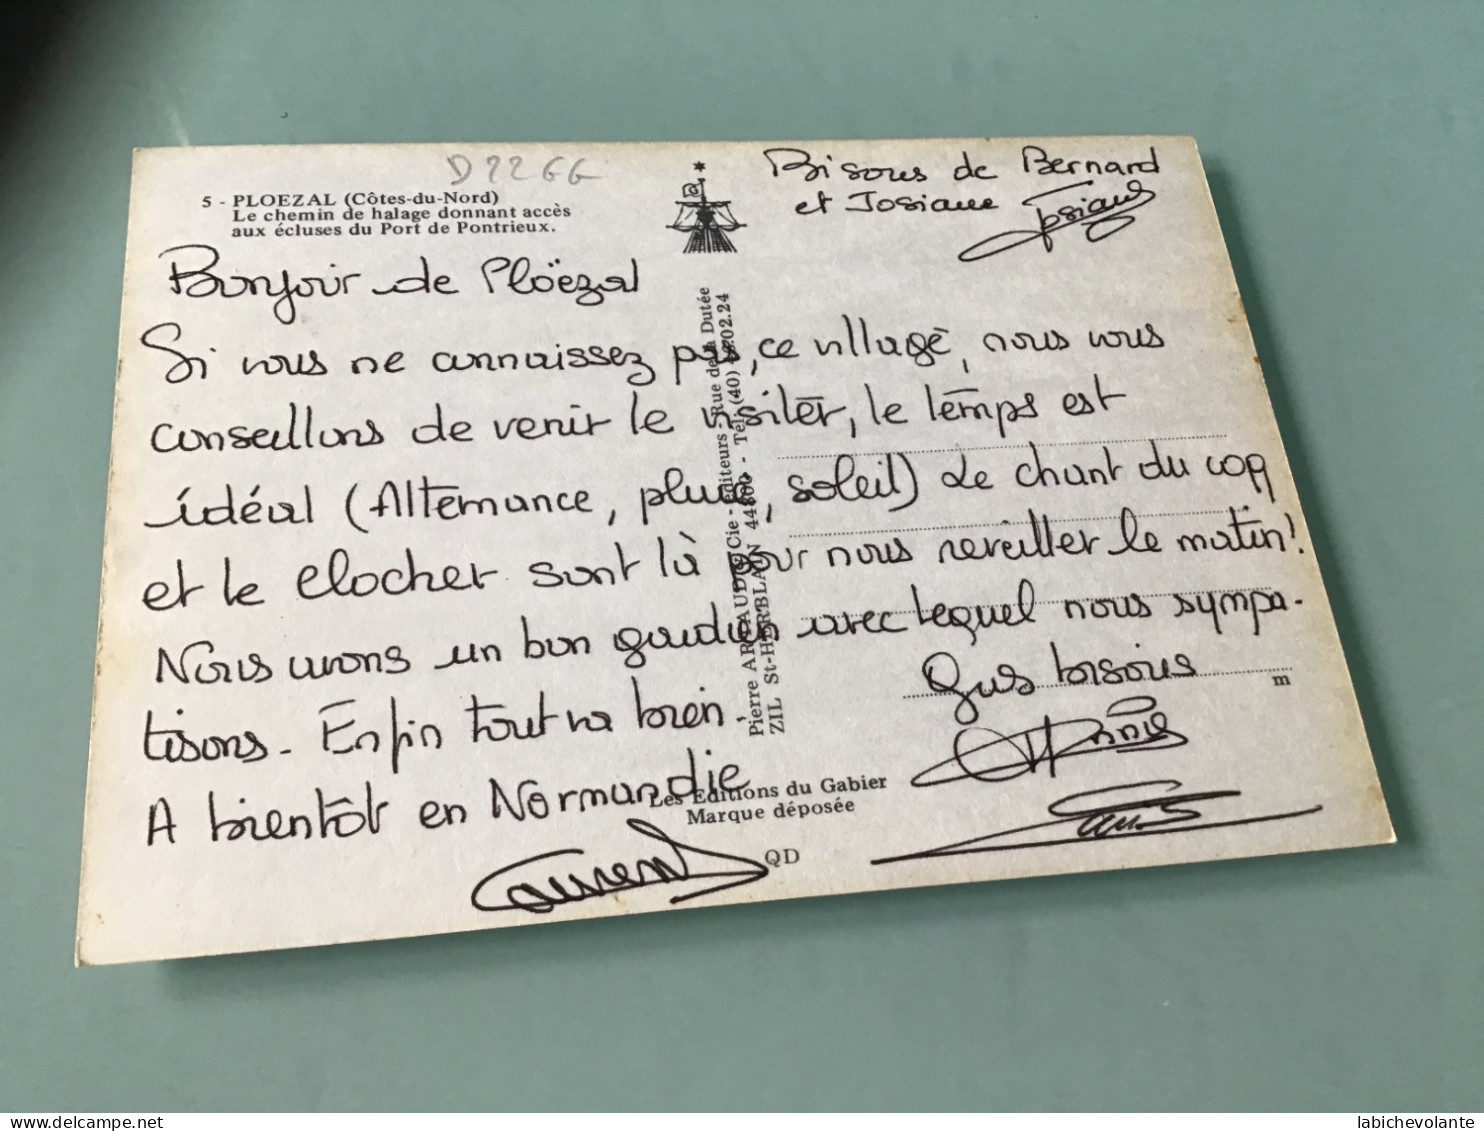 D22GG
5 - PLOEZAL (Côtes-du-Nord)
Le chemin de halage donnant accès
aux écluses du Port de Pontrieux.
Bisous de Bernard
et Josiane Josiane
Bonjour de Ploëzal
Si vous ne connaissez pas, ce village, nous vous
conseillons de venir le visiter, le temps est
idéal (Alternance, pluie, soleil) Le chant du coq
et le clocher sont là pour nous reveiller le matin!
Nous avons un bon gardien avec lequel nous sympa-
tisons - Enfin tout va bien.
Gros bisous
A bientôt en Normandie
Laurent
Annie
Pierre ARTAUD & Cie - Editeurs - Rue de la Dutée
ZIL St-HERBLAIN 44800 - Tél. (40) .02.24
Les Editions du Gabier
Marque déposée
QD
m
labichevolante